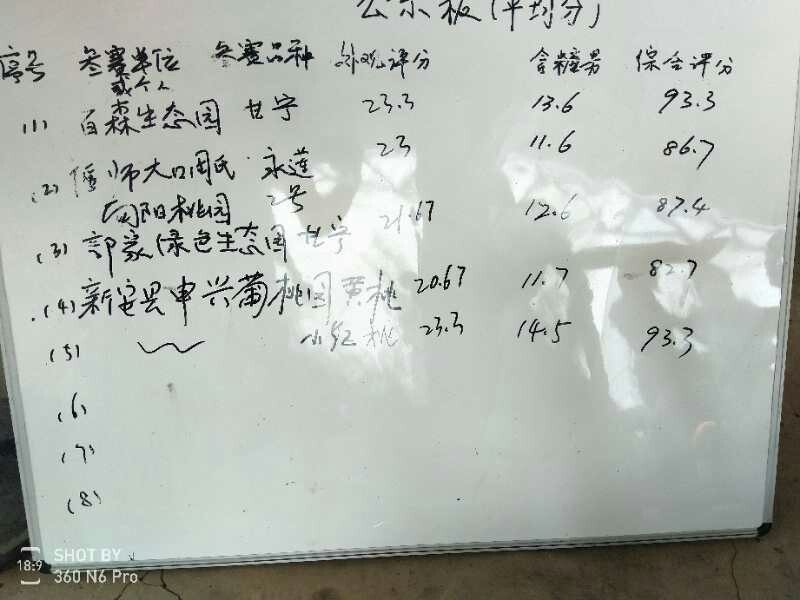 公示板(平均分)
序号 参赛单位 参赛品种 外观评分 含糖量 综合评分
或个人
(1) 百森生态园 甘宁 23.3 13.6 93.3
(2) 偃师大口周氏 永莲 23 11.6 86.7
向阳桃园 2号
(3) 郭家绿色生态园 甘宁 21.67 12.6 87.4
(4) 新安县申兴葡桃园 黄桃 20.67 11.7 82.7
(5) 小红桃 23.3 14.5 93.3
(6)
(7)
(8)
18:9 SHOT BY
360 N6 Pro